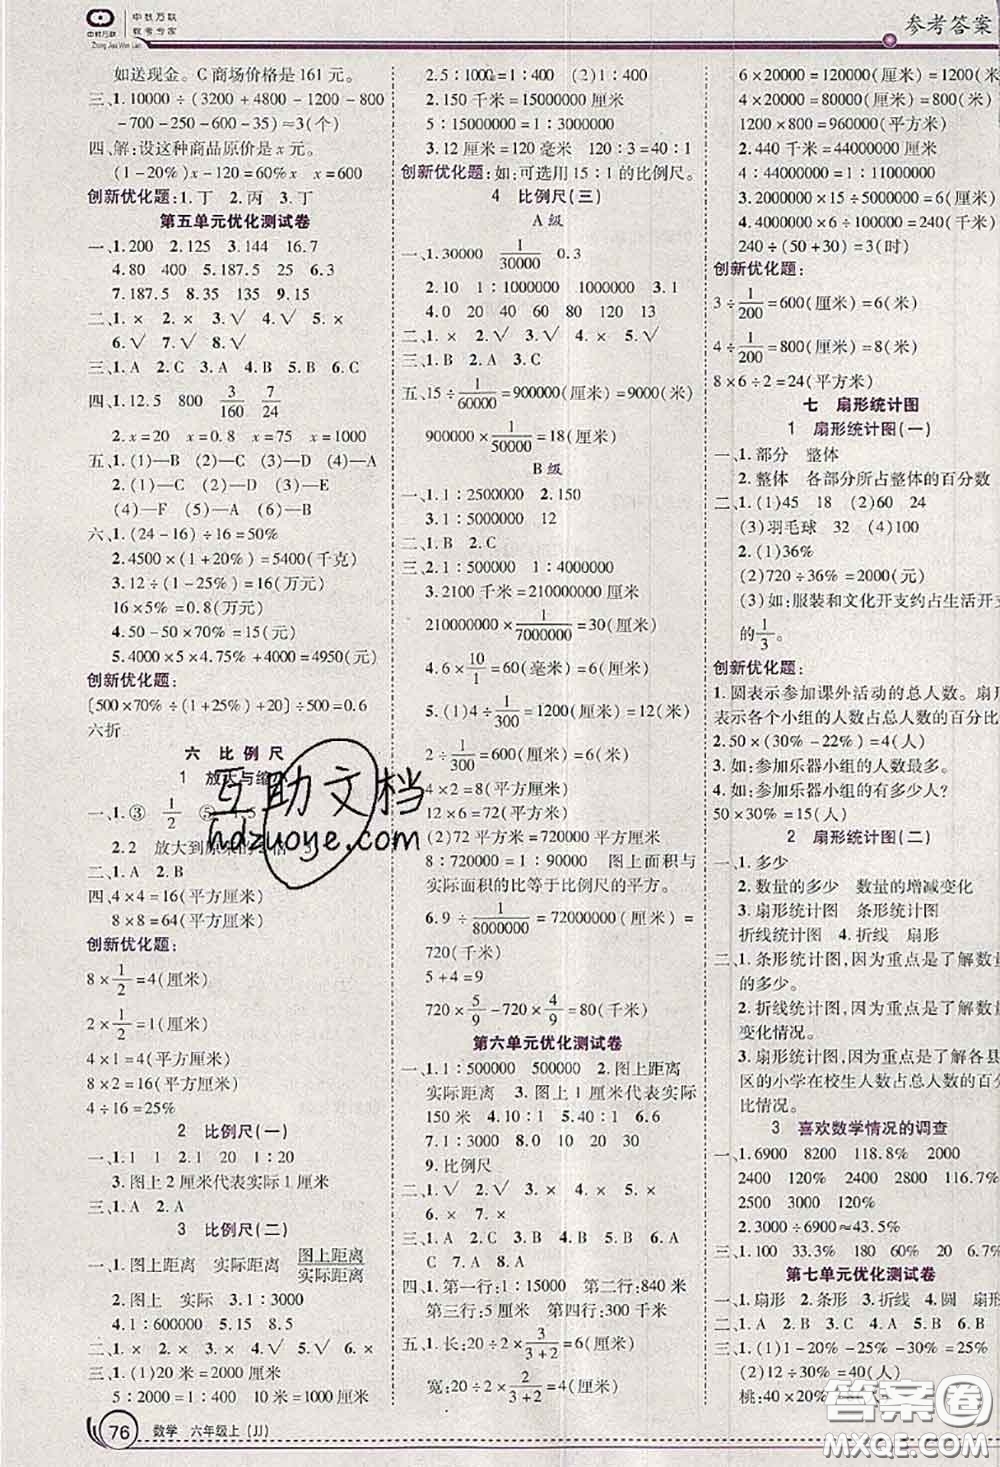 中教万联
教考专家
中教万联
Zhong Jiao Wan Lian
参考答案
如送现金。C商场价格是161元。
三、1.10000÷(3200+4800-1200-800
-700-250-600-35)≈3(个)
四、解:设这种商品原价是x元。
(1-20%)x-120=60% x=600
创新优化题:1.丁 2.丙 3.丁
第五单元优化测试卷
一、1.200 2.125 3.144 16.7
4.80 400 5.187.5 25 6.3
7.187.5 8.135 9.15
二、1.× 2.× 3.√ 4.√ 5.×
6.√ 7.√ 8.√
三、1.A 2.C 3.A 4.C 5.A
四、1.12.5 800 3/160 7/24
2.x=20 x=0.8 x=75 x=1000
五、1.(1)—B (2)—A (3)—C
2.(1)—C (2)—E (3)—D
(4)—F (5)—A (6)—B
六、1.(24-16)÷16=50%
2.4500×(1+20%)=5400(千克)
3.12÷(1-25%)=16(万元)
16×5%=0.8(万元)
4.50-50×70%=15(元)
5.4000×5×4.75%+4000=4950(元)
创新优化题:
[500×70%÷(1+25%)+20]÷500=0.6
六折
六 比例尺
1 放大与缩
一、1.③ 1/2 ⑤ 4.5
2.2 放大到原来的
二、1.A 2.B
四、4×4=16(平方厘米)
8×8=64(平方厘米)
创新优化题:
8×1/2=4(厘米)
2×1/2=1(厘米)
4×1=4(平方厘米)
8×2=16(平方厘米)
4÷16=25%
2 比例尺(一)
一、1.1 1 2.20 1∶20
3.图上2厘米代表实际1厘米
三、1.A 2.A
3 比例尺(二)
一、1.图上距离 实际距离 图上距离/实际距离
2.图上 实际 3.1∶30000
4.1∶600000 5.9
二、1.× 2.√ 3.× 4.√
三、1.(1)20米=2000厘米
5∶2000=1∶400 10米=1000厘米
2.5∶1000=1∶400
2.150千米=15000000厘米
5∶15000000=1∶3000000
3.12厘米=120毫米 120∶3=40∶1
创新优化题:如:可选用15∶1的比例尺。
4 比例尺(三)
A级
一、1.30000 1/30000 0.3
2.10 1∶1000000 1000000 3.1
4.0 20 40 60 80 120 13
二、1.× 2.√ 3.√ 4.×
三、1.B 2.A 3.C
五、15÷1/60000=900000(厘米)=9000(米)
900000×1/50000=18(厘米)
B级
一、1.1∶2500000 2.150
3.1∶5000000 12
二、1.B 2.C
三、2.1∶500000 1∶4000000
3.2100千米=210000000厘米
210000000×1/7000000=30(厘米)
4.6×10/1=60(毫米)=6(厘米)
5.(1)4÷1/300=1200(厘米)=12(米)
2÷1/300=600(厘米)=6(米)
4×2=8(平方厘米)
12×6=72(平方米)
(2)72平方米=720000平方厘米
8∶720000=1∶90000 图上面积与
实际面积的比等于比例尺的平方。
6.9÷1/8000000=72000000(厘米)=
720(千米)
5+4=9
720×5/9-720×4/9=80(千米)
第六单元优化测试卷
一、1.1∶500000 500000 2.图上距离
实际距离 3.图上1厘米代表实际
150米 4.10∶1 5.40∶1 6.6
7.1∶30000 8.0.9
9.比例尺
二、1.√ 2.√ 3.√ 4.× 5.×
6.× 7.×
三、1.A 2.B 3.B 4.B 5.A 6.
C 7.A 8.A
四、1.第一行:1∶15000 第二行:840米
第三行:5厘米 第四行:300千米
五、1.长:20÷2×3/(3+2)=6(厘米)
宽:20÷2×2/(3+2)=4(厘米)
6×20000=120000(厘米)=1200(米)
4×20000=80000(厘米)=800(米)
1200×800=960000(平方米)
2.440千米=44000000厘米
4∶44000000=1∶11000000
3.2000000×15÷5000000=6(厘米)
4.4000000×6÷100000=240(千米)
240÷(50+30)=3(时)
创新优化题:
3÷1/200=600(厘米)=6(米)
4÷1/200=800(厘米)=8(米)
8×6÷2=24(平方米)
七 扇形统计图
1 扇形统计图(一)
一、1.部分 整体
2.整体 各部分所占整体的百分数
二、1.(1)45 18 (2)60 24
(3)羽毛球 32 (4)100
2.(1)36%
(2)720÷36%=2000(元)
(3)如:服装和文化开支约占生活开支
的1/3。
创新优化题:
1.圆表示参加课外活动的总人数。扇形
表示各个小组的人数占总人数的百分比
2.50×(30%-22%)=4(人)
3.如:参加乐器小组的人数最多。
4.如:参加乐器小组的有多少人?
50×30%=15(人)
2 扇形统计图(二)
一、1.多少
2.数量的多少 数量的增减变化
3.扇形统计图 条形统计图
折线统计图 4.折线 扇形
二、1.条形统计图,因为重点是了解数量
的多少。
2.折线统计图,因为重点是了解数量
变化情况。
3.扇形统计图,因为重点是了解各县
区的小学在校生人数占总人数的百分
比情况。
3 喜欢数学情况的调查
一、1.6900 8200 118.8% 2000
2400 120% 2400 2900 120.8%
2500 3000 120%
2.3000÷6900≈43.5%
三、1.100 33.3% 180 60% 20 6.7%
第七单元优化测试卷
一、1.扇形 2.条形 3.折线 4.圆 扇形
二、1.A 2.B 3.C 4.A 5.B
三、1.(1)1-20%-25%-25%=30%
(2)12÷30%=40(人)
桃:40×20%=
76 数学 六年级上(JJ)
互助文档
hdzuoye.com
答案圈
MXQE.COM